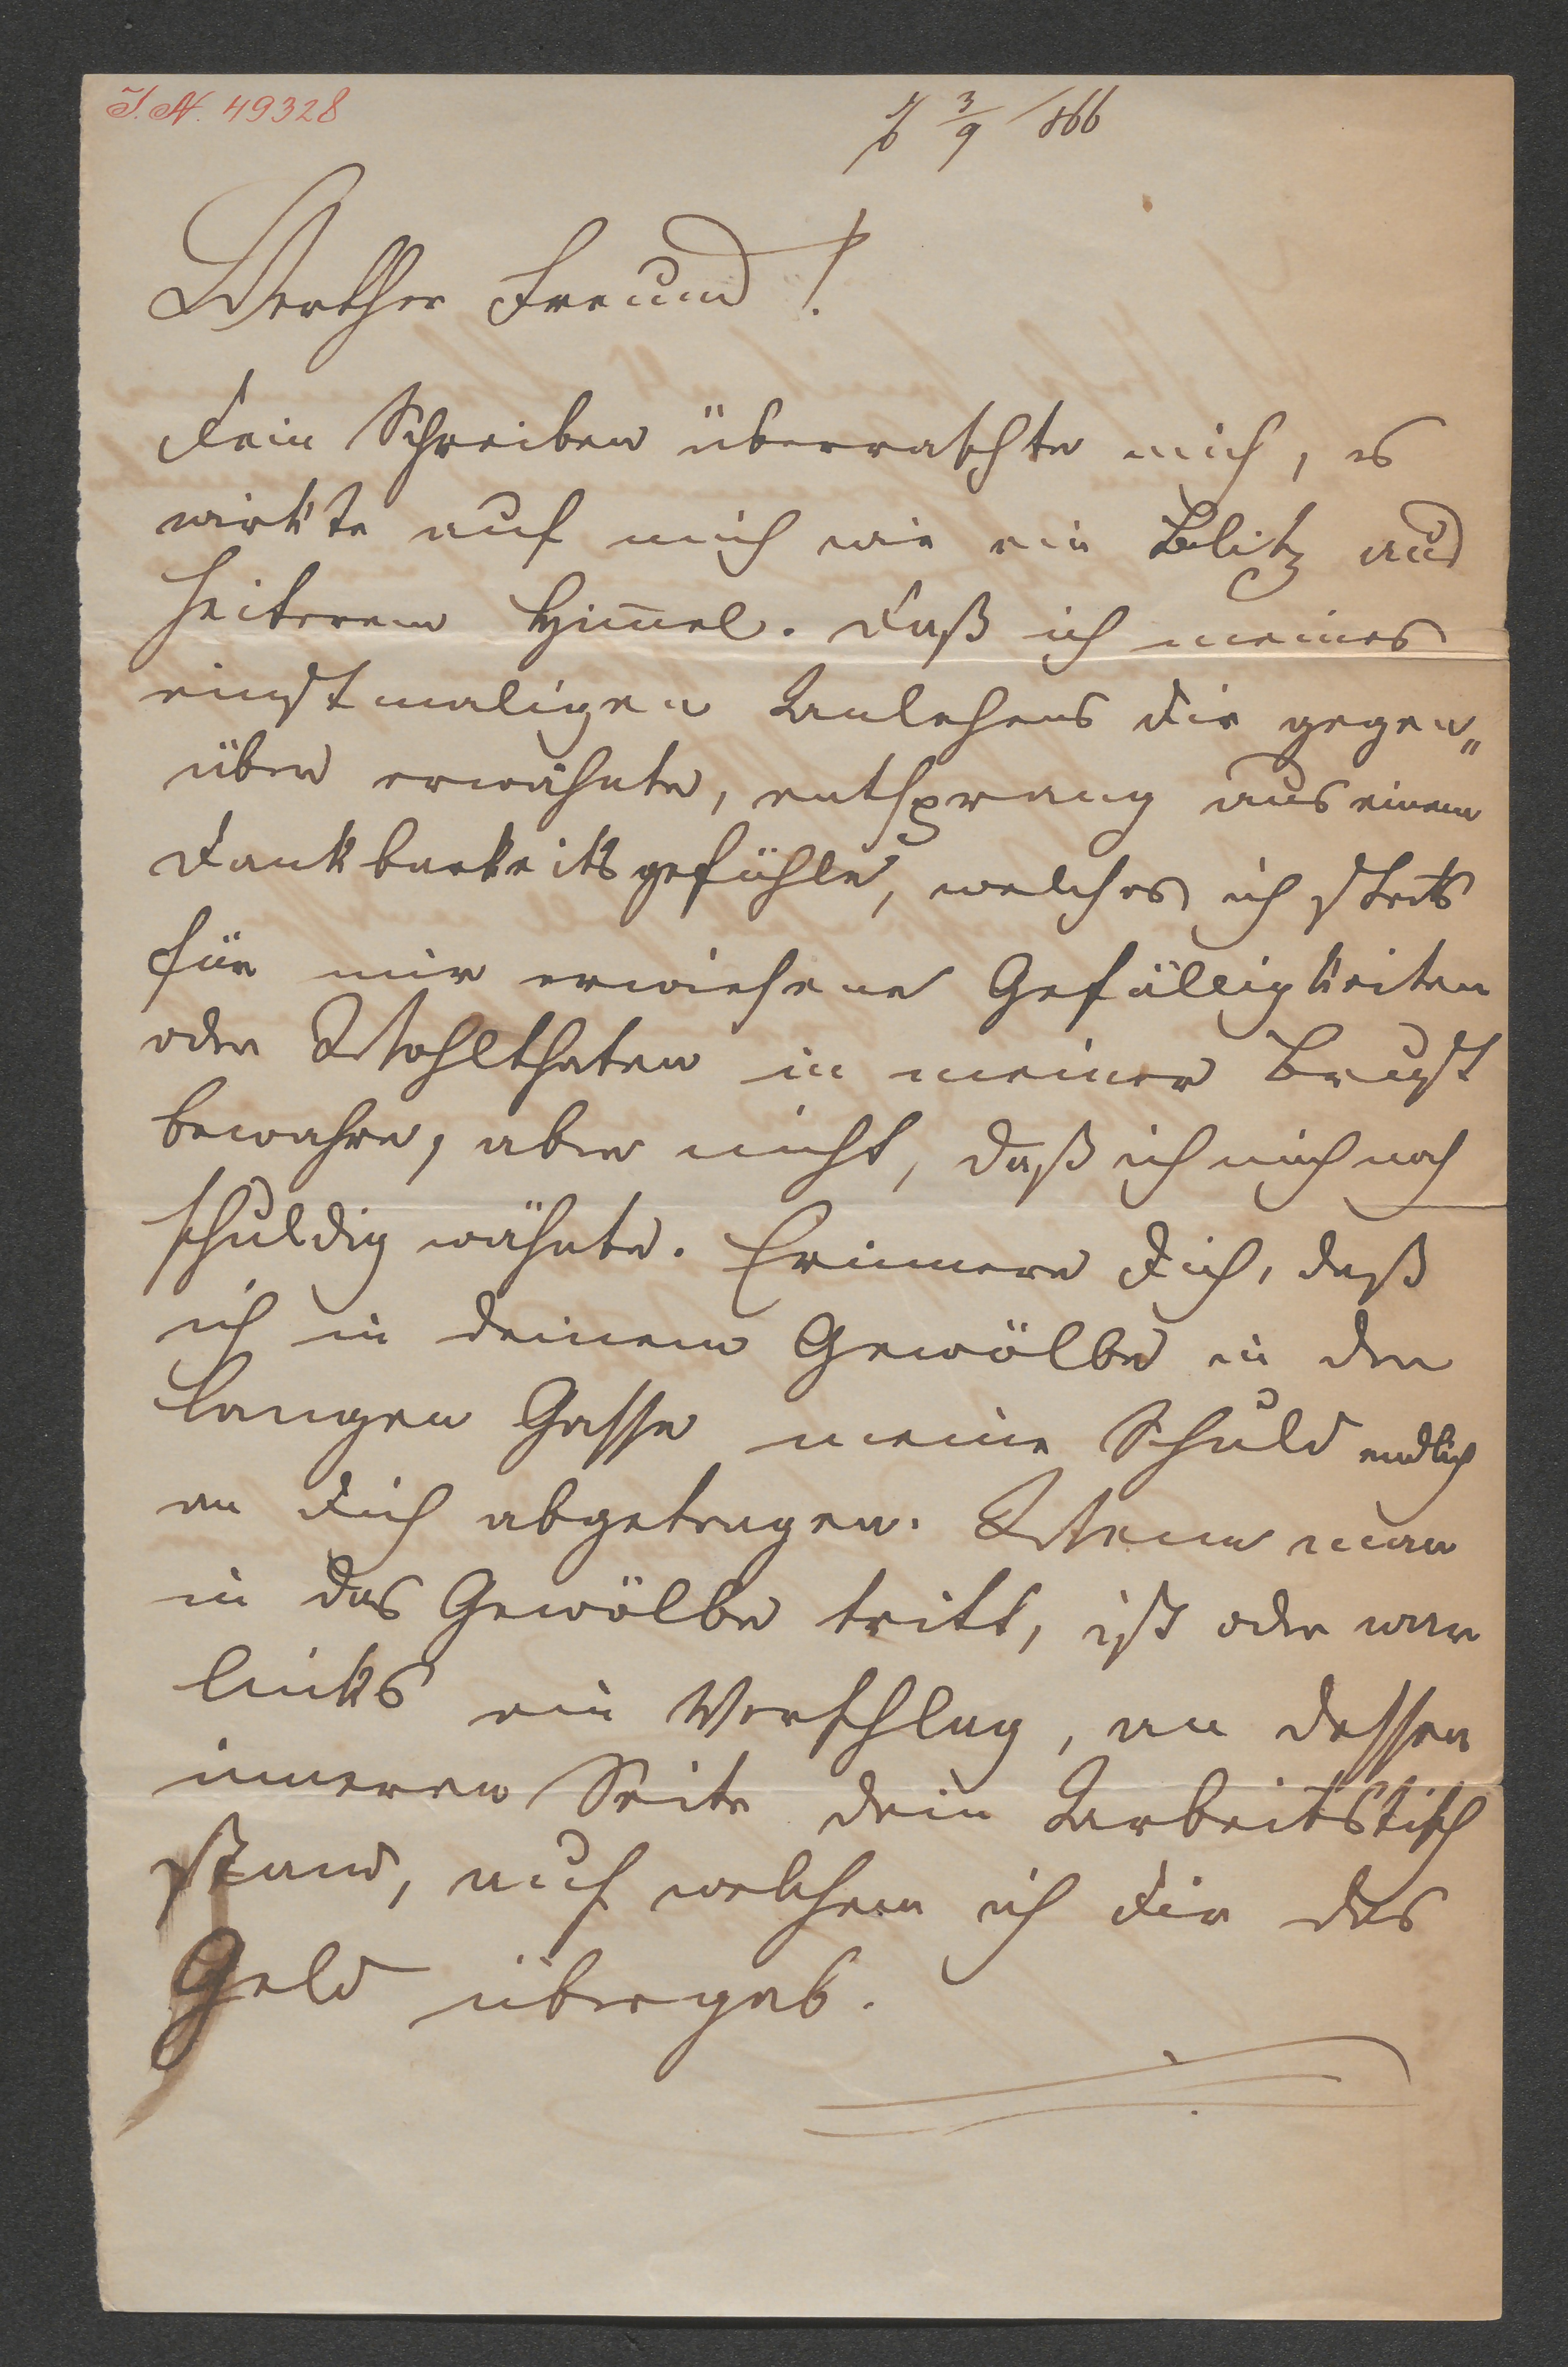 I. N. 49328
3/9 866
Werther Freund!
Dein Schreiben überraschte mich, es
wirkte auf mich wie ein Blitz aus
heiterem Him̅el. Daß ich meines
einstmaligen Anlehens Dir gegen„
über erwähnte, entsprang aus einem
Dankbarkeitsgefühle, welches ich stets
für mir erwiesene Gefälligkeiten
oder Wohlthaten in meiner Brust
bewahre, aber nicht, daß ich mich noch
schuldig wähnte. Erinnere Dich, daß
ich in deinem Gewölbe in der
langen Gasse meine Schuld endlich
an Dich abgetragen. Wenn man
in das Gewölbe tritt, ist oder war
links ein Verschlag, an dessen
inneren Seite dein Arbeitstisch
stand, auf welchem ich Dir das
Geld übergab.